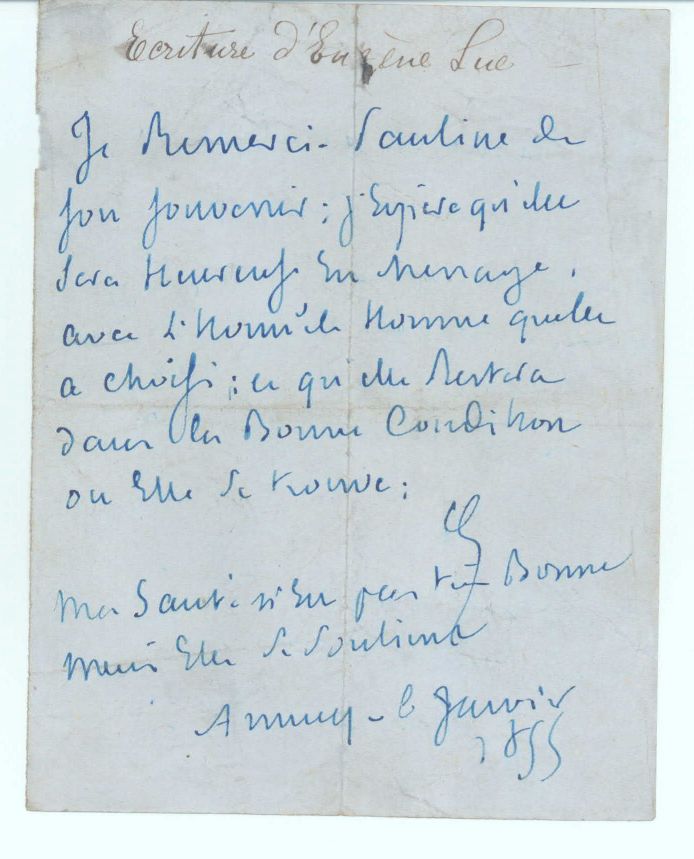 Ecriture d'Eugène Sue
Je Remerci. Pauline de
son souvenir; j'Espère qu'elle
sera Heureuse En Menage,
avec L'Homme qu'elle
a choisi; et qu'elle Restera
dans la Bonne Condition
ou Elle se trouve;
Ma Santé n'En pas très Bonne
mais Elle se soutient
Annecy - 6 Janvier
1855